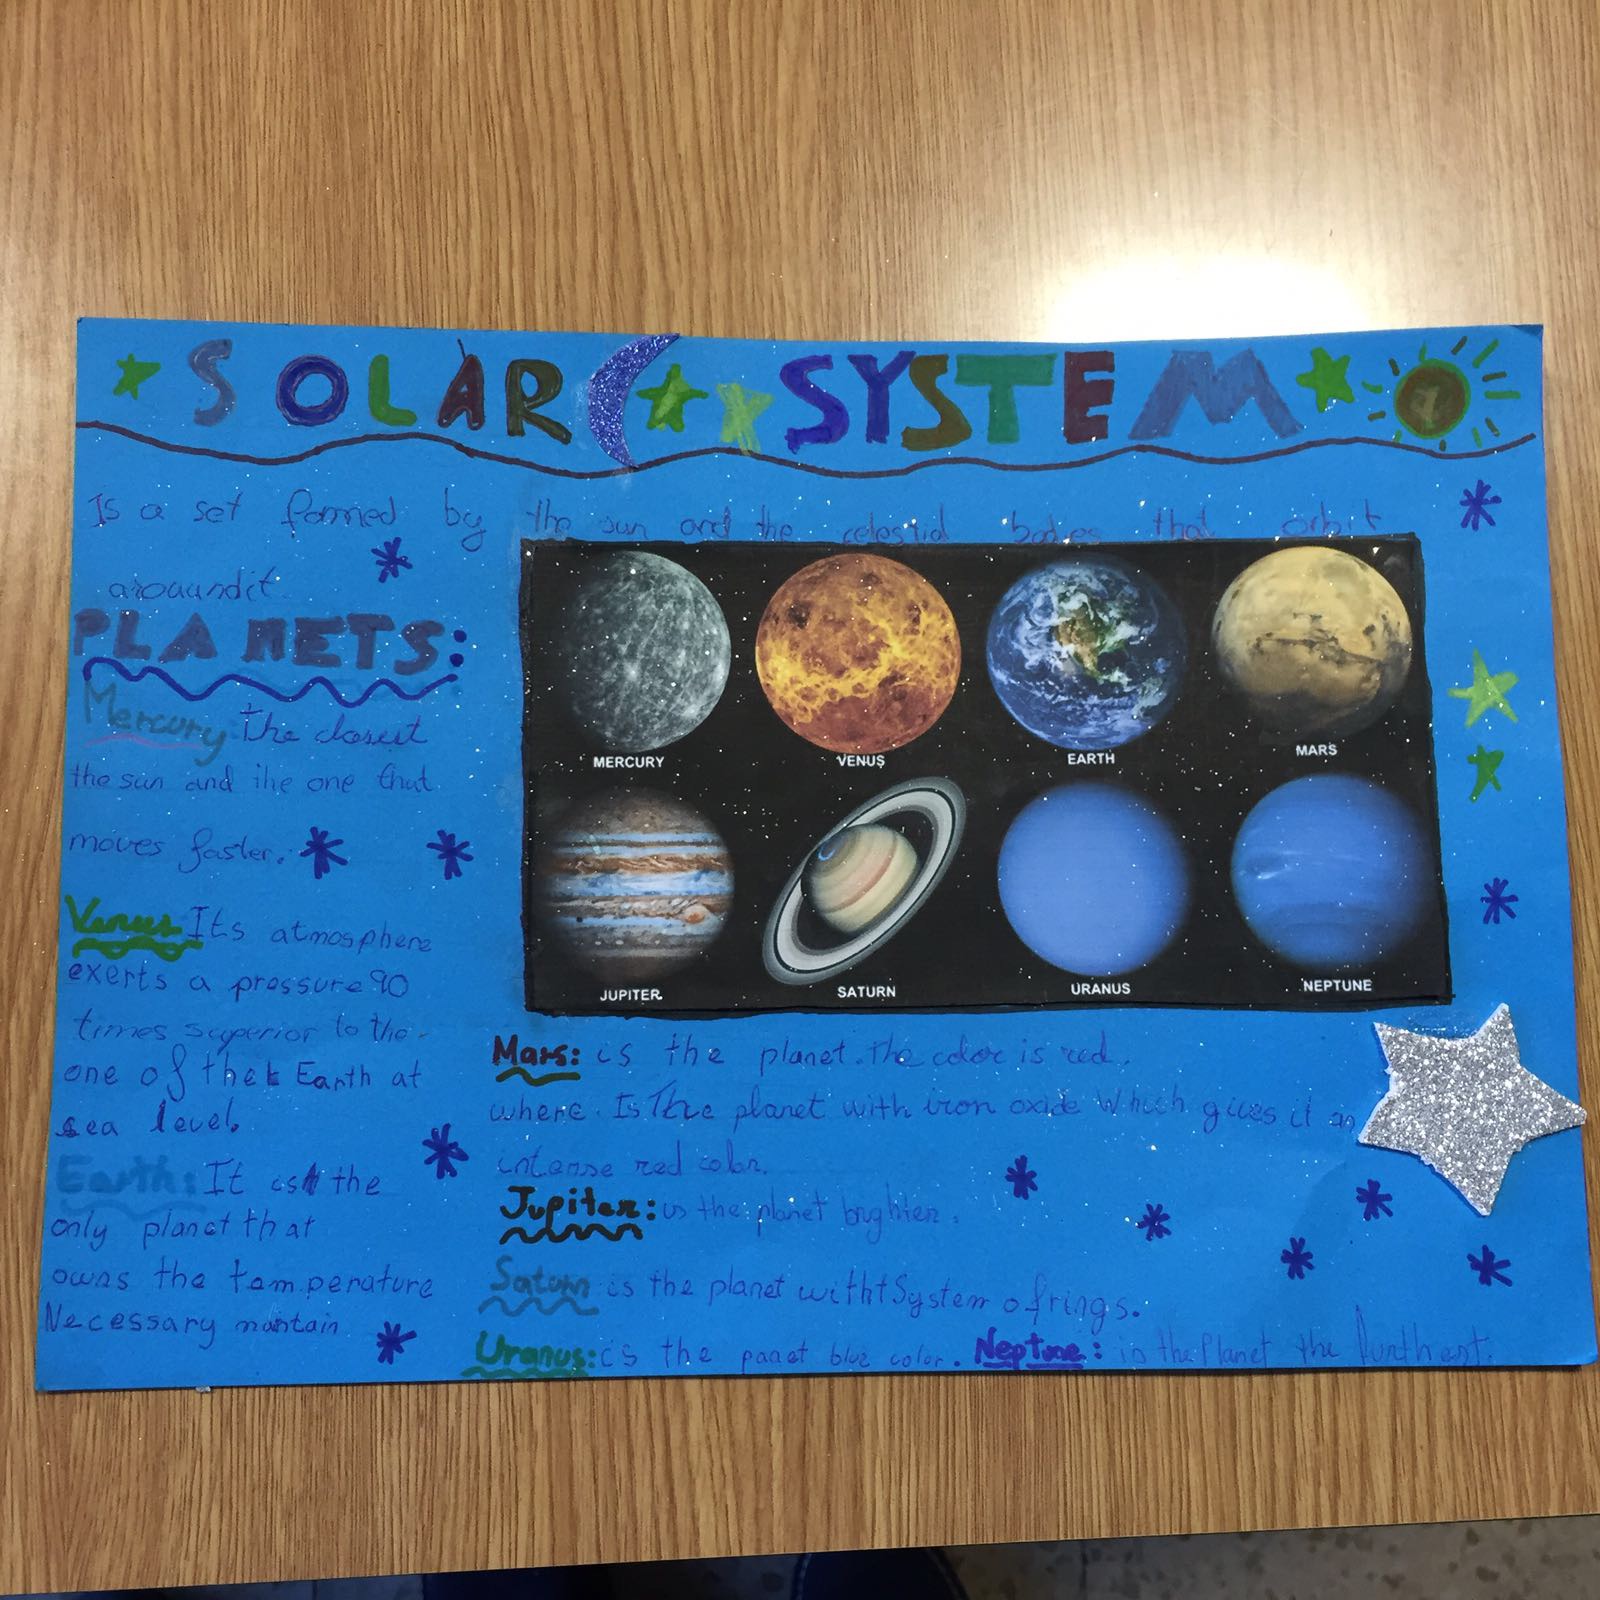 SOLAR SYSTEM
Is a set formed by the sun and the celestial bodies that orbit
arouundit.
PLANETS:
Mercury: the closest
the sun and the one that
moves faster.
Venus: Its atmosphere
exerts a pressure 90
times superior to the
one of the Earth at
sea level.
Earth: It is the
only planet that
owns the temperature
Necessary mantain
MERCURY
VENUS
EARTH
MARS
JUPITER
SATURN
URANUS
NEPTUNE
Mars: is the planet. the color is red.
where. Is The planet with iron oxide Which gives it an
intense red color.
Jupiter: is the planet brighter.
Saturn is the planet witht System of rings.
Uranus: is the panet blue color. Neptune: is the Planet the furthest.